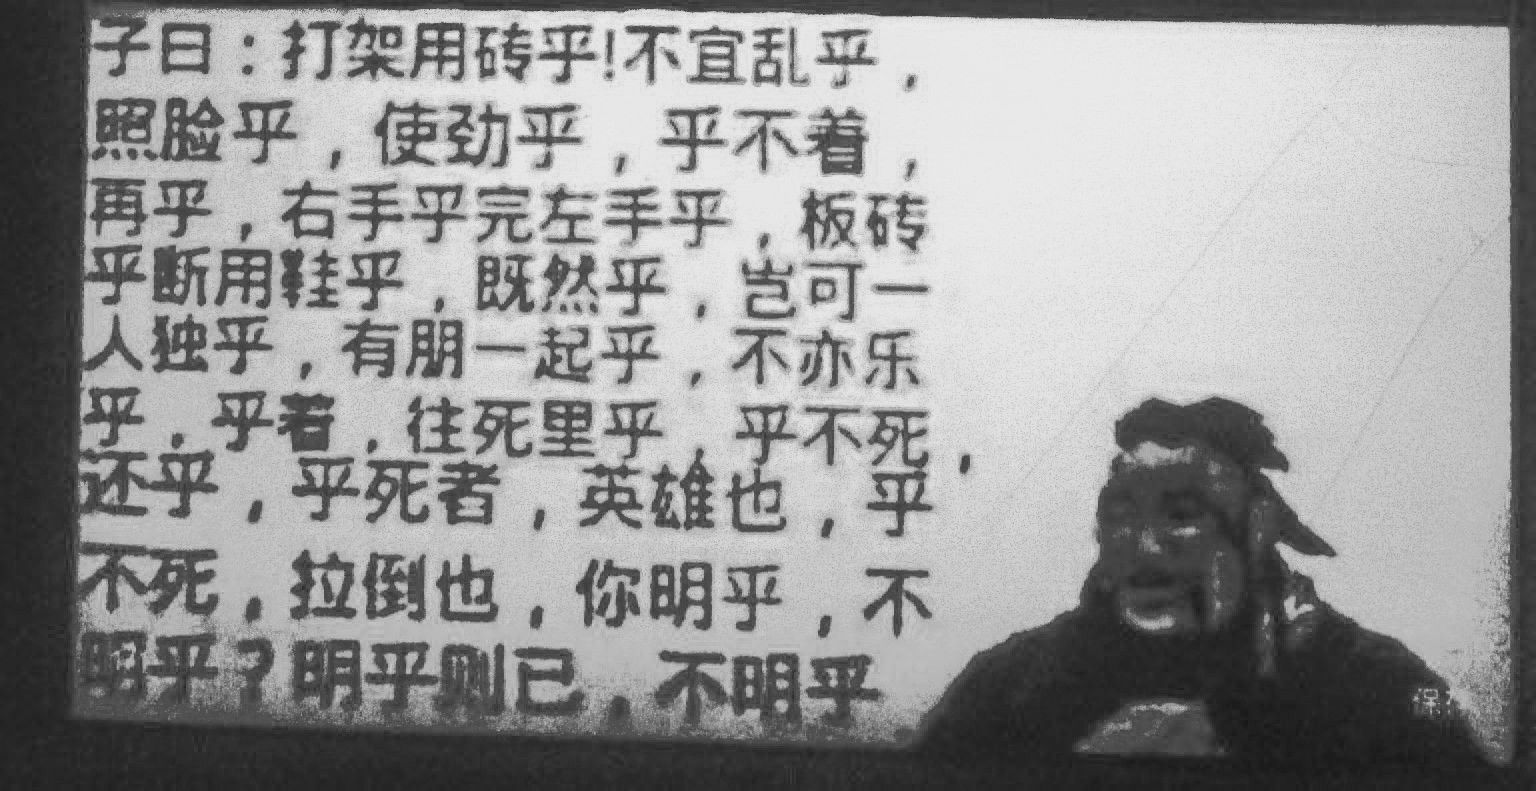 子曰：打架用砖乎！不宜乱乎，
照脸乎，使劲乎，乎不着，
再乎，右手乎完左手乎，板砖
乎断用鞋乎，既然乎，岂可一
人独乎，有朋一起乎，不亦乐
乎，乎着，往死里乎，乎不死，
还乎，乎死者，英雄也，乎
不死，拉倒也，你明乎，不
明乎？明乎则已，不明乎